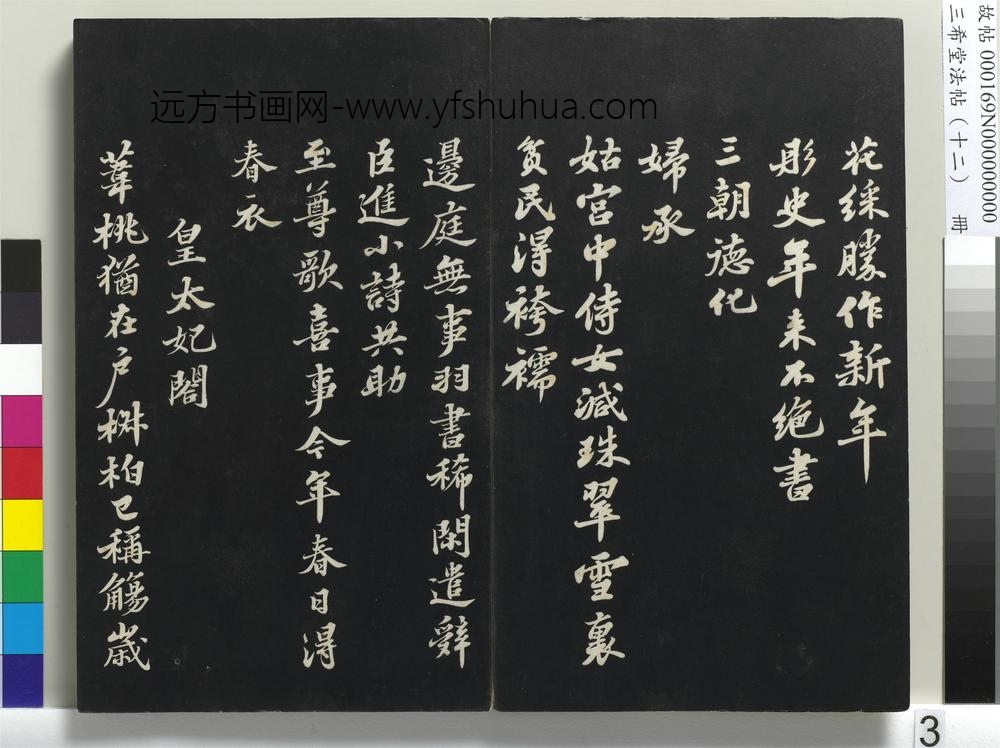 花綵勝作新年
彤史年来不絶書
三朝德化
婦承
姑宮中侍女減珠翠雪裏
貧民得袴襦
邊庭無事羽書稀閑遣辭
臣進小詩共助
至尊歌喜事今年春日得
春衣
皇太妃閤
葦桃猶在户椒柏已稱觴歲
远方书画网-www.yfshuhua.com
故帖 000169N000000000
三希堂法帖（十二） 冊
3